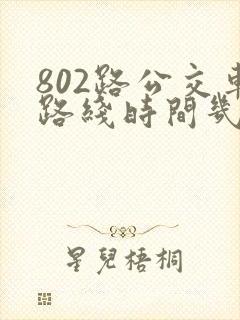 802路公交車
路綫時間幾
星兒梧桐